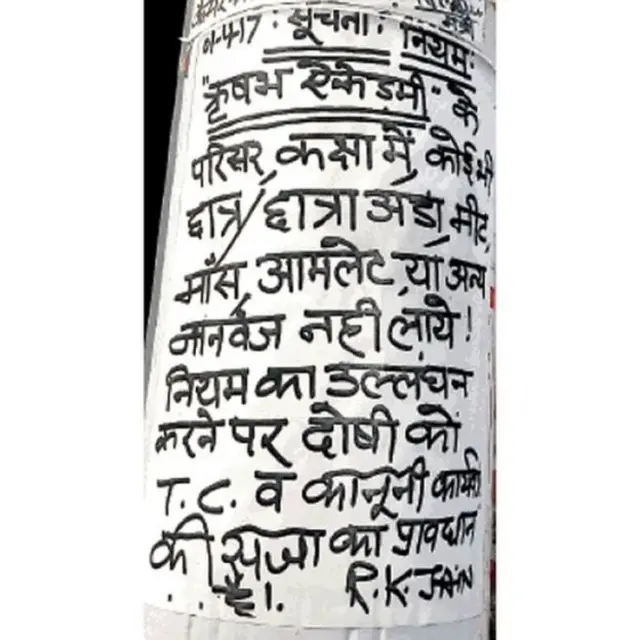 01-4-17 : सूचना : नियम :
"ऋषभ ऐकेडमी" के
परिसर, कक्षा में, कोई भी
छात्र/छात्रा अंडा, मीट,
माँस, आमलेट, या अन्य
नानवेज नही लाये !
नियम का उल्लंघन
करने पर दोषी को
T.C. व कानूनी कार्यवा
की सजा का प्रावधान
है।. R.K.JAIN